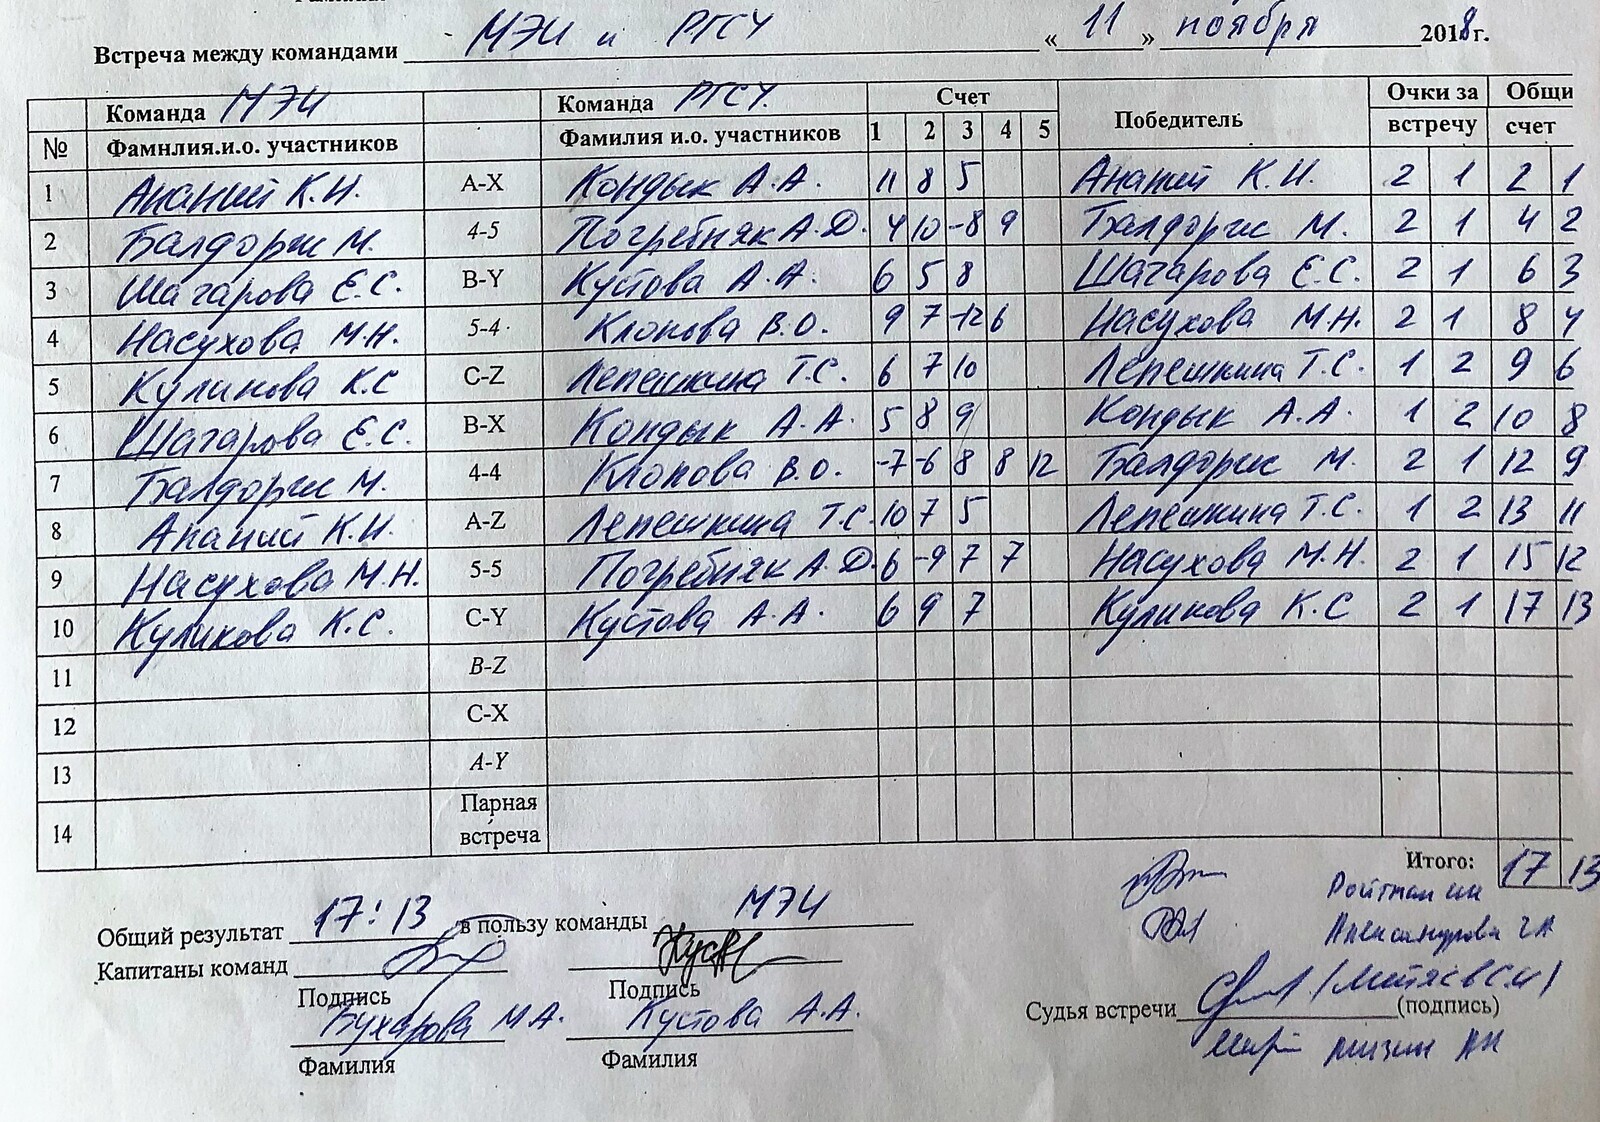 Встреча между командами МЭИ и РГСУ « 11 » ноября 2018 г.
Команда МЭИ Команда РГСУ. Счет Победитель Очки за Общи
№ Фамнлия.и.о. участников Фамилия и.о. участников 1 2 3 4 5 встречу счет
1 Ананий К.И. A-X Кондык А.А. 11 8 5 Ананий К.И. 2 1 2 1
2 Балдорж М. 4-5 Погребняк А.Д. 4 10 -8 9 Балдорж М. 2 1 4 2
3 Шагарова Е.С. B-Y Кустова А.А. 6 5 8 Шагарова Е.С. 2 1 6 3
4 Насухова М.Н. 5-4 Клопова В.О. 9 7 -12 6 Насухова М.Н. 2 1 8 4
5 Куликова К.С C-Z Лепешкина Т.С. 6 7 10 Лепешкина Т.С. 1 2 9 6
6 Шагарова Е.С. B-X Кондык А.А. 5 8 9 Кондык А.А. 1 2 10 8
7 Балдорж М. 4-4 Клопова В.О. -7 -6 8 8 12 Балдорж М. 2 1 12 9
8 Ананий К.И. A-Z Лепешкина Т.С. 10 7 5 Лепешкина Т.С. 1 2 13 11
9 Насухова М.Н. 5-5 Погребняк А.Д. 6 -9 7 7 Насухова М.Н. 2 1 15 12
10 Куликова К.С. C-Y Кустова А.А. 6 9 7 Куликова К.С 2 1 17 13
11 B-Z
12 C-X
13 A-Y
14 Парная встреча
Итого: 17 13
Общий результат 17:13 в пользу команды МЭИ
Александрова
Капитаны команд
Подпись Подпись
Судья встречи (подпись)
Бухарова М.А. Кустова А.А.
Фамилия Фамилия